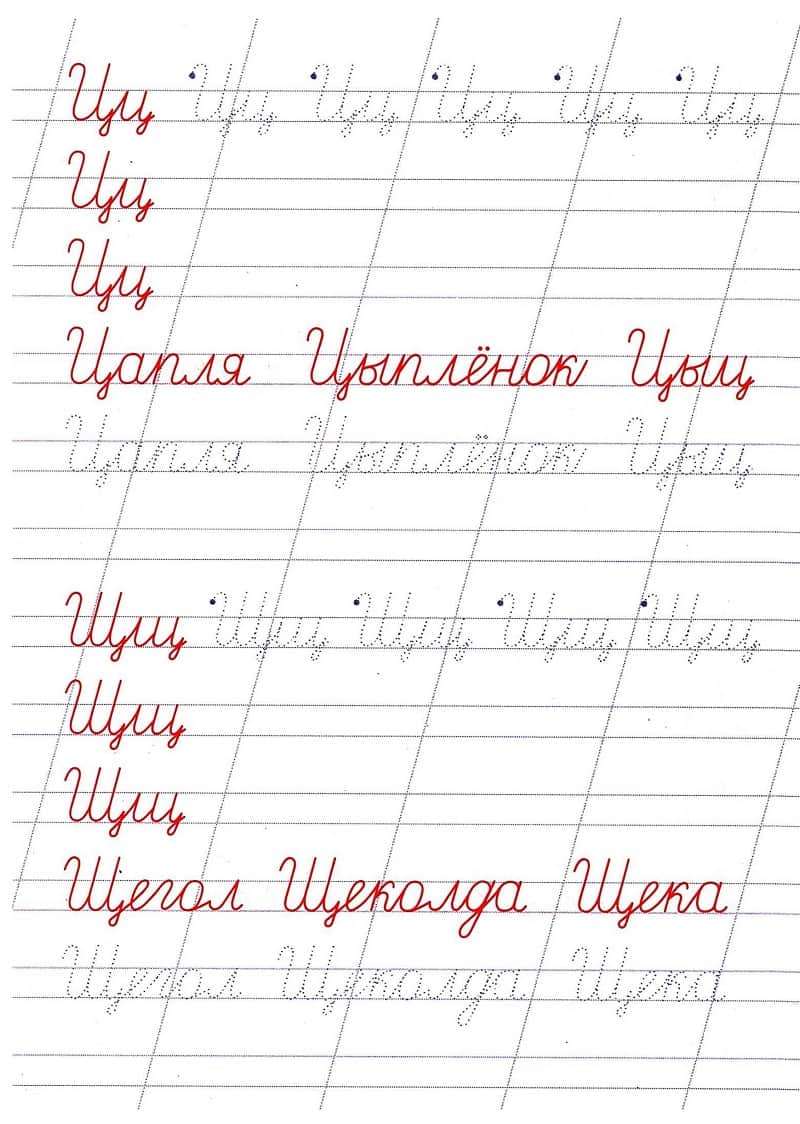 Цц Цц Цц Цц Цц Цц
Цц
Цц
Цапля Цыплёнок Цыц
Цапля Цыплёнок Цыц
Щщ Щщ Щщ Щщ Щщ
Щщ
Щщ
Щегол Щеколда Щека
Щегол Щеколда Щека